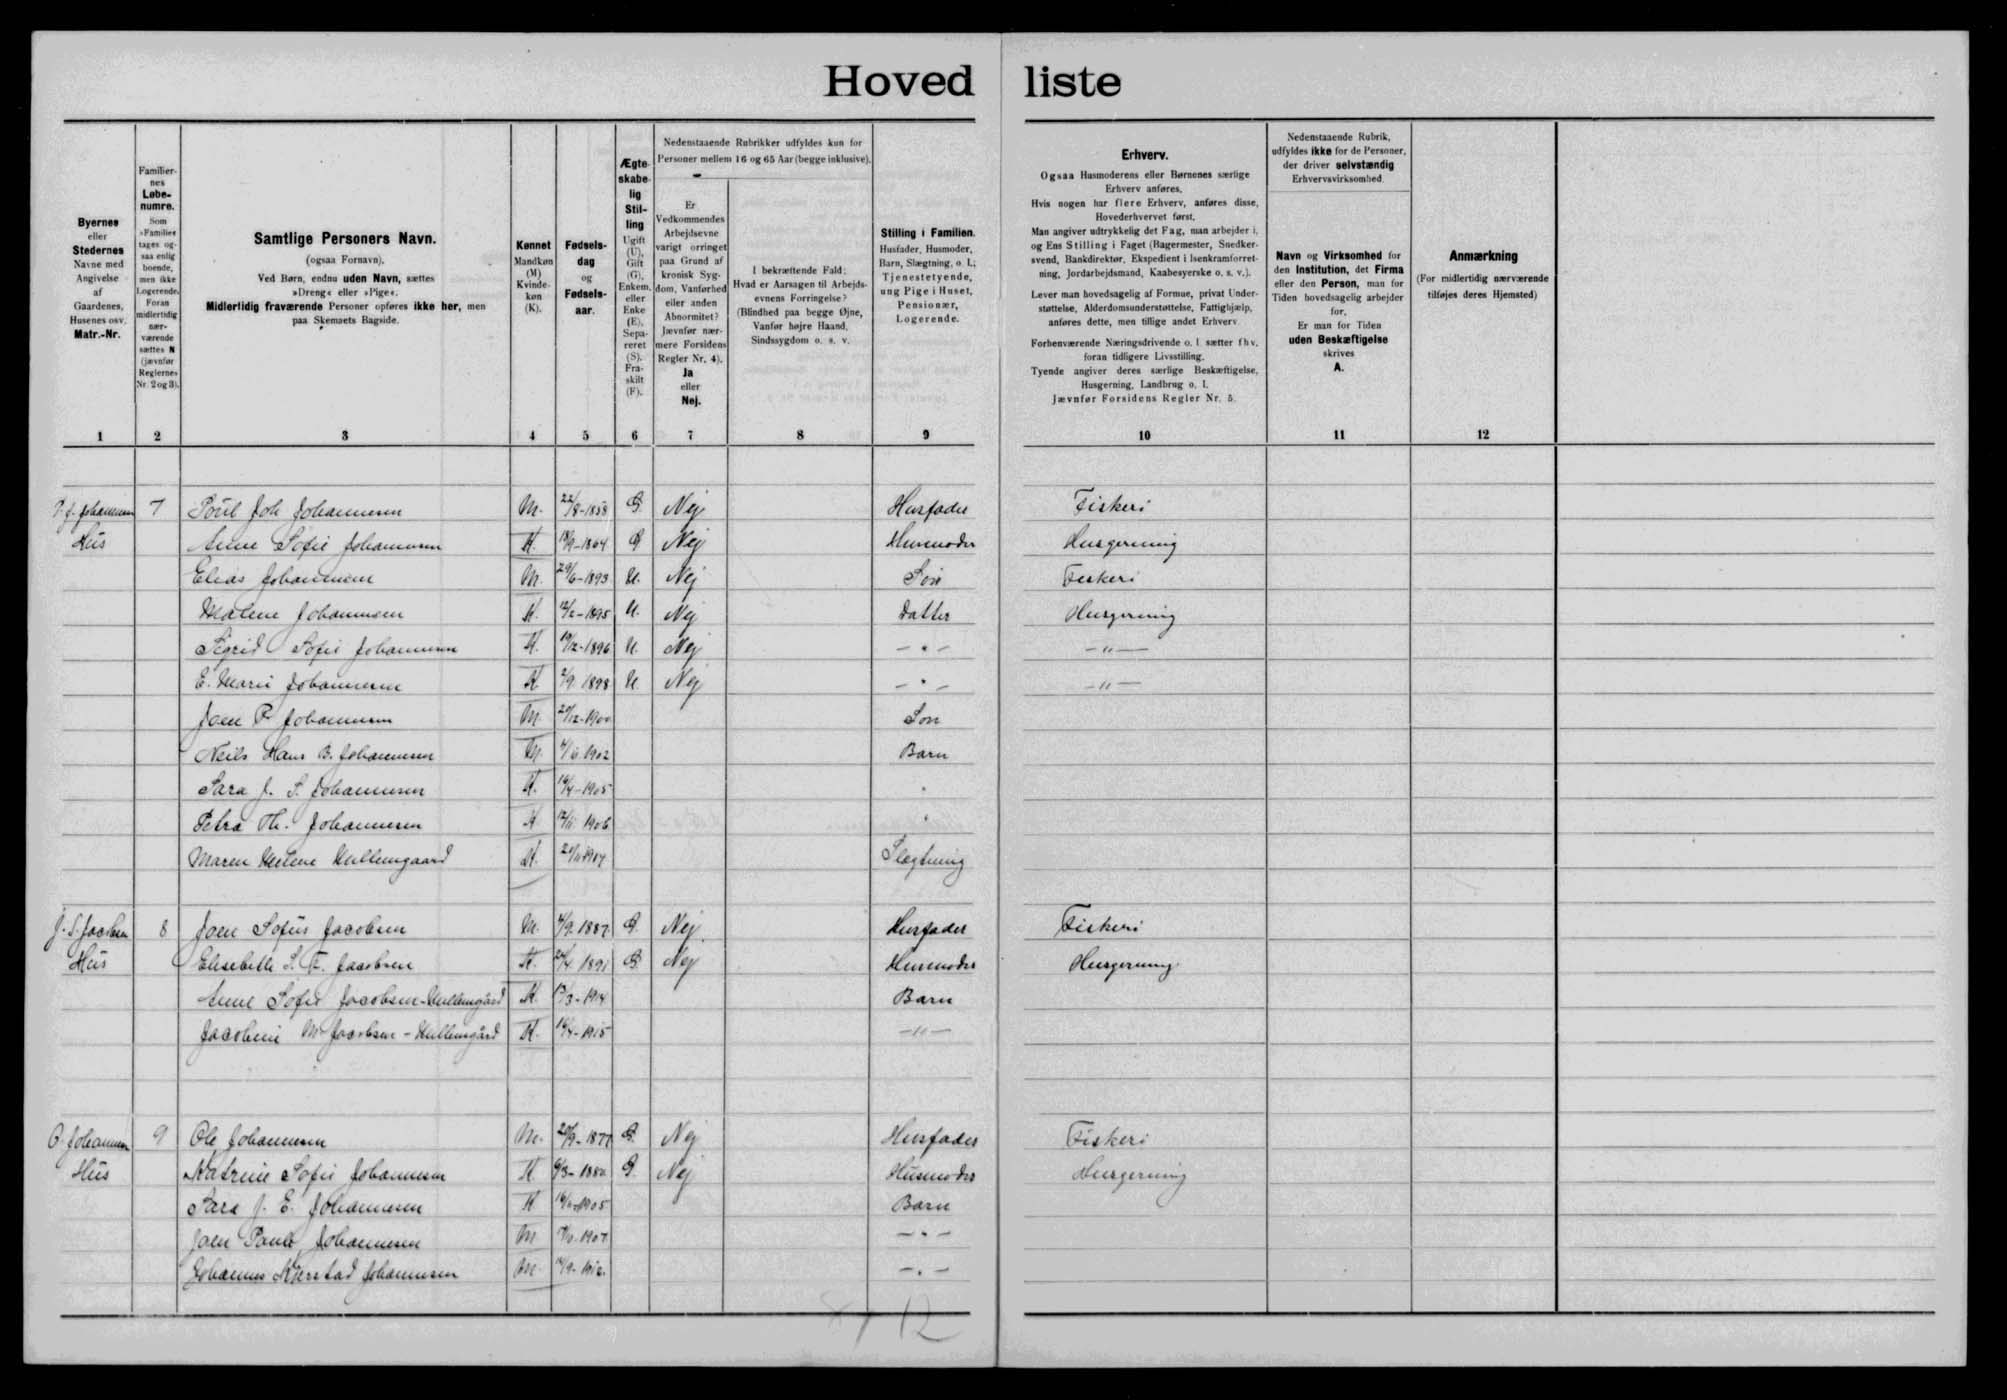 Hoved liste
Byernes
eller
Stedernes
Navne med
Angivelse
af
Gaardenes,
Husenes osv.
Matr.-Nr.
Familier-
nes
Løbe-
numre.
Som
»Familie«
tages og-
saa enlig
boende,
men ikke
Logerende.
Foran
midlertidig
nær-
værende
sættes N
(jævnfør
Reglernes
Nr. 2 og 3).
Samtlige Personers Navn.
(ogsaa Fornavn).
Ved Børn, endnu uden Navn, sættes
»Dreng« eller »Pige«.
Midlertidig fraværende Personer opføres ikke her, men
paa Skemaets Bagside.
Kønnet
Mandkøn
(M)
Kvinde-
køn
(K).
Fødsels-
dag
og
Fødsels-
aar.
Ægte-
skabe-
lig
Stil-
ling
Ugift
(U),
Gift
(G),
Enkem.
eller
Enke
(E),
Sepa-
reret
(S).
Fra-
skilt
(F).
Nedenstaaende Rubrikker udfyldes kun for
Personer mellem 16 og 65 Aar (begge inklusive).
Er
Vedkommendes
Arbejdsevne
varigt forringet
paa Grund af
kronisk Syg-
dom, Vanførhed
eller anden
Abnormitet?
Jævnfør nær-
mere Forsidens
Regler Nr. 4).
Ja
eller
Nej.
I bekræftende Fald:
Hvad er Aarsagen til Arbejds-
evnens Forringelse?
(Blindhed paa begge Øjne,
Vanfør højre Haand,
Sindssygdom o. s. v.
Stilling i Familien.
Husfader, Husmoder,
Barn, Slægtning, o. l.;
Tjenestetyende,
ung Pige i Huset,
Pensionær,
Logerende.
Erhverv.
Ogsaa Husmoderens eller Børnenes særlige
Erhverv anføres.
Hvis nogen har flere Erhverv, anføres disse,
Hovederhvervet først.
Man angiver udtrykkelig det Fag, man arbejder i,
og Ens Stilling i Faget (Bagermester, Snedker-
svend, Bankdirektør, Ekspedient i Isenkramforret-
ning, Jordarbejdsmand, Kaabesyerske o. s. v.).
Lever man hovedsagelig af Formue, privat Under-
støttelse, Alderdomsunderstøttelse, Fattighjælp,
anføres dette, men tillige andet Erhverv.
Forhenværende Næringsdrivende o. l. sætter fhv.
foran tidligere Livsstilling.
Tyende angiver deres særlige Beskæftigelse,
Husgerning, Landbrug o. l.
Jævnfør Forsidens Regler Nr. 5.
Nedenstaaende Rubrik,
udfyldes ikke for de Personer,
der driver selvstændig
Erhvervsvirksomhed.
Navn og Virksomhed for
den Institution, det Firma
eller den Person, man for
Tiden hovedsagelig arbejder
for.
Er man for Tiden
uden Beskæftigelse
skrives
A.
Anmærkning
(For midlertidig nærværende
tilføjes deres Hjemsted)
1 2 3 4 5 6 7 8 9 10 11 12
P. J. Johannesen 7 Poul Joh Johannesen M. 22/8-1858 G. Nej Husfader Fiskeri
Hus Anne Sofie Johannesen K. 18/9-1864 G Nej Husmoder Husgerning
Elias Johannesen M. 29/6-1893 U. Nej Søn Fiskeri
Malene Johannesen K. 1895 U. Nej Datter Husgerning
Sigrid Sofie Johannesen K. 19/12-1896 U. Nej - " - - " -
E. Marie Johannesen K 2/9 1898 U. Nej - " - - " -
Joen P Johannesen M. 20/12-1900 Søn
Neils Hans B. Johannesen M. 1902 Barn
Sara J. S. Johannesen K. 14/4-1905 "
Petra Th. Johannesen K 12/11 1906 "
Maren Helene Mullemgaard K. Slægtning
J. S. Jacobsen 8 Joen Sofus Jacobsen M. 4/9 1887 G. Nej. Husfader Fiskeri
Hus Elisebeth S. Jacobsen K. 24/4 1891 G. Nej Husmoder Husgerning
Anne Sofie Jacobsen-Mullemgård K 13/3-1914 Barn
Jacobine M Jacobsen-Mullemgård K. 14/4-1915 - " -
O. Johannesen 9 Ole Johannesen M. 20/9-1877 G. Nej Husfader Fiskeri
Hus Katrine Sofie Johannesen K 6/3-1880 G. Nej Husmoder Husgerning
Sara J. E. Johannesen K 1905 Barn
Joen Paule Johannesen M 1907 - " -
Johannes Johannesen M - " -
12